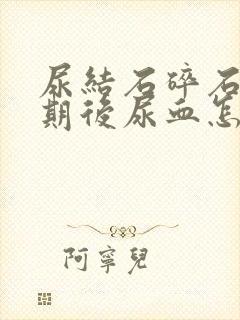 尿結石碎石
期後尿血怎
阿寧兒